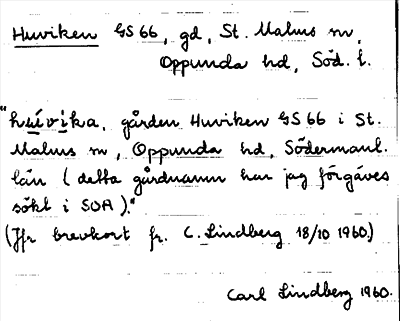 Huviken GS 66, gd, St. Malms sn,
Oppunda hd, Söd. l.
"húvika, gården Huviken GS 66 i St.
Malms sn, Oppunda hd, Södermanl.
län (detta gårdnamn har jag förgäves
sökt i SOA)."
(Jfr brevkort fr. C. Lindberg 18/10 1960.)
Carl Lindberg 1960.